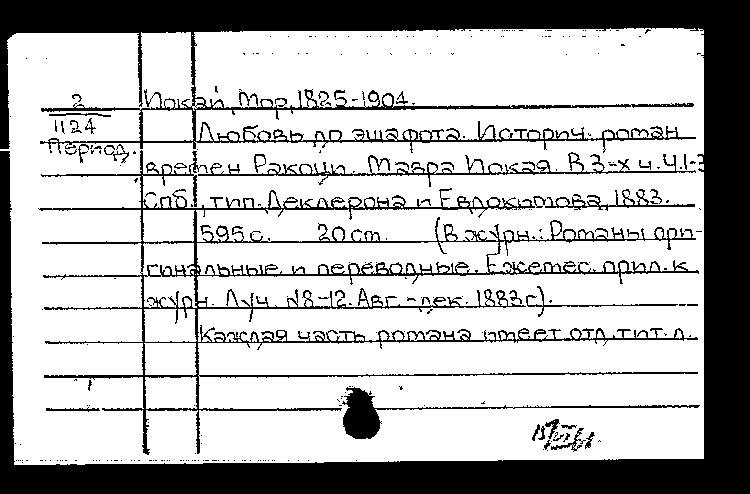 2
1124
Период.
Йокай, Мор, 1825-1904.
Любовь до эшафота. Историч. роман
времен Ракоци. Мавра Йокая. В 3-х ч. Ч.1-3
Спб., тип. Деклерона и Евдокимова, 1883.
595 с. 20 ст. (В журн.: Романы ори-
гинальные и переводные. Ежемес. прил. к
журн. Луч. №8-12. Авг.-дек. 1883 г).
Каждая часть романа имеет отд. тит. л.